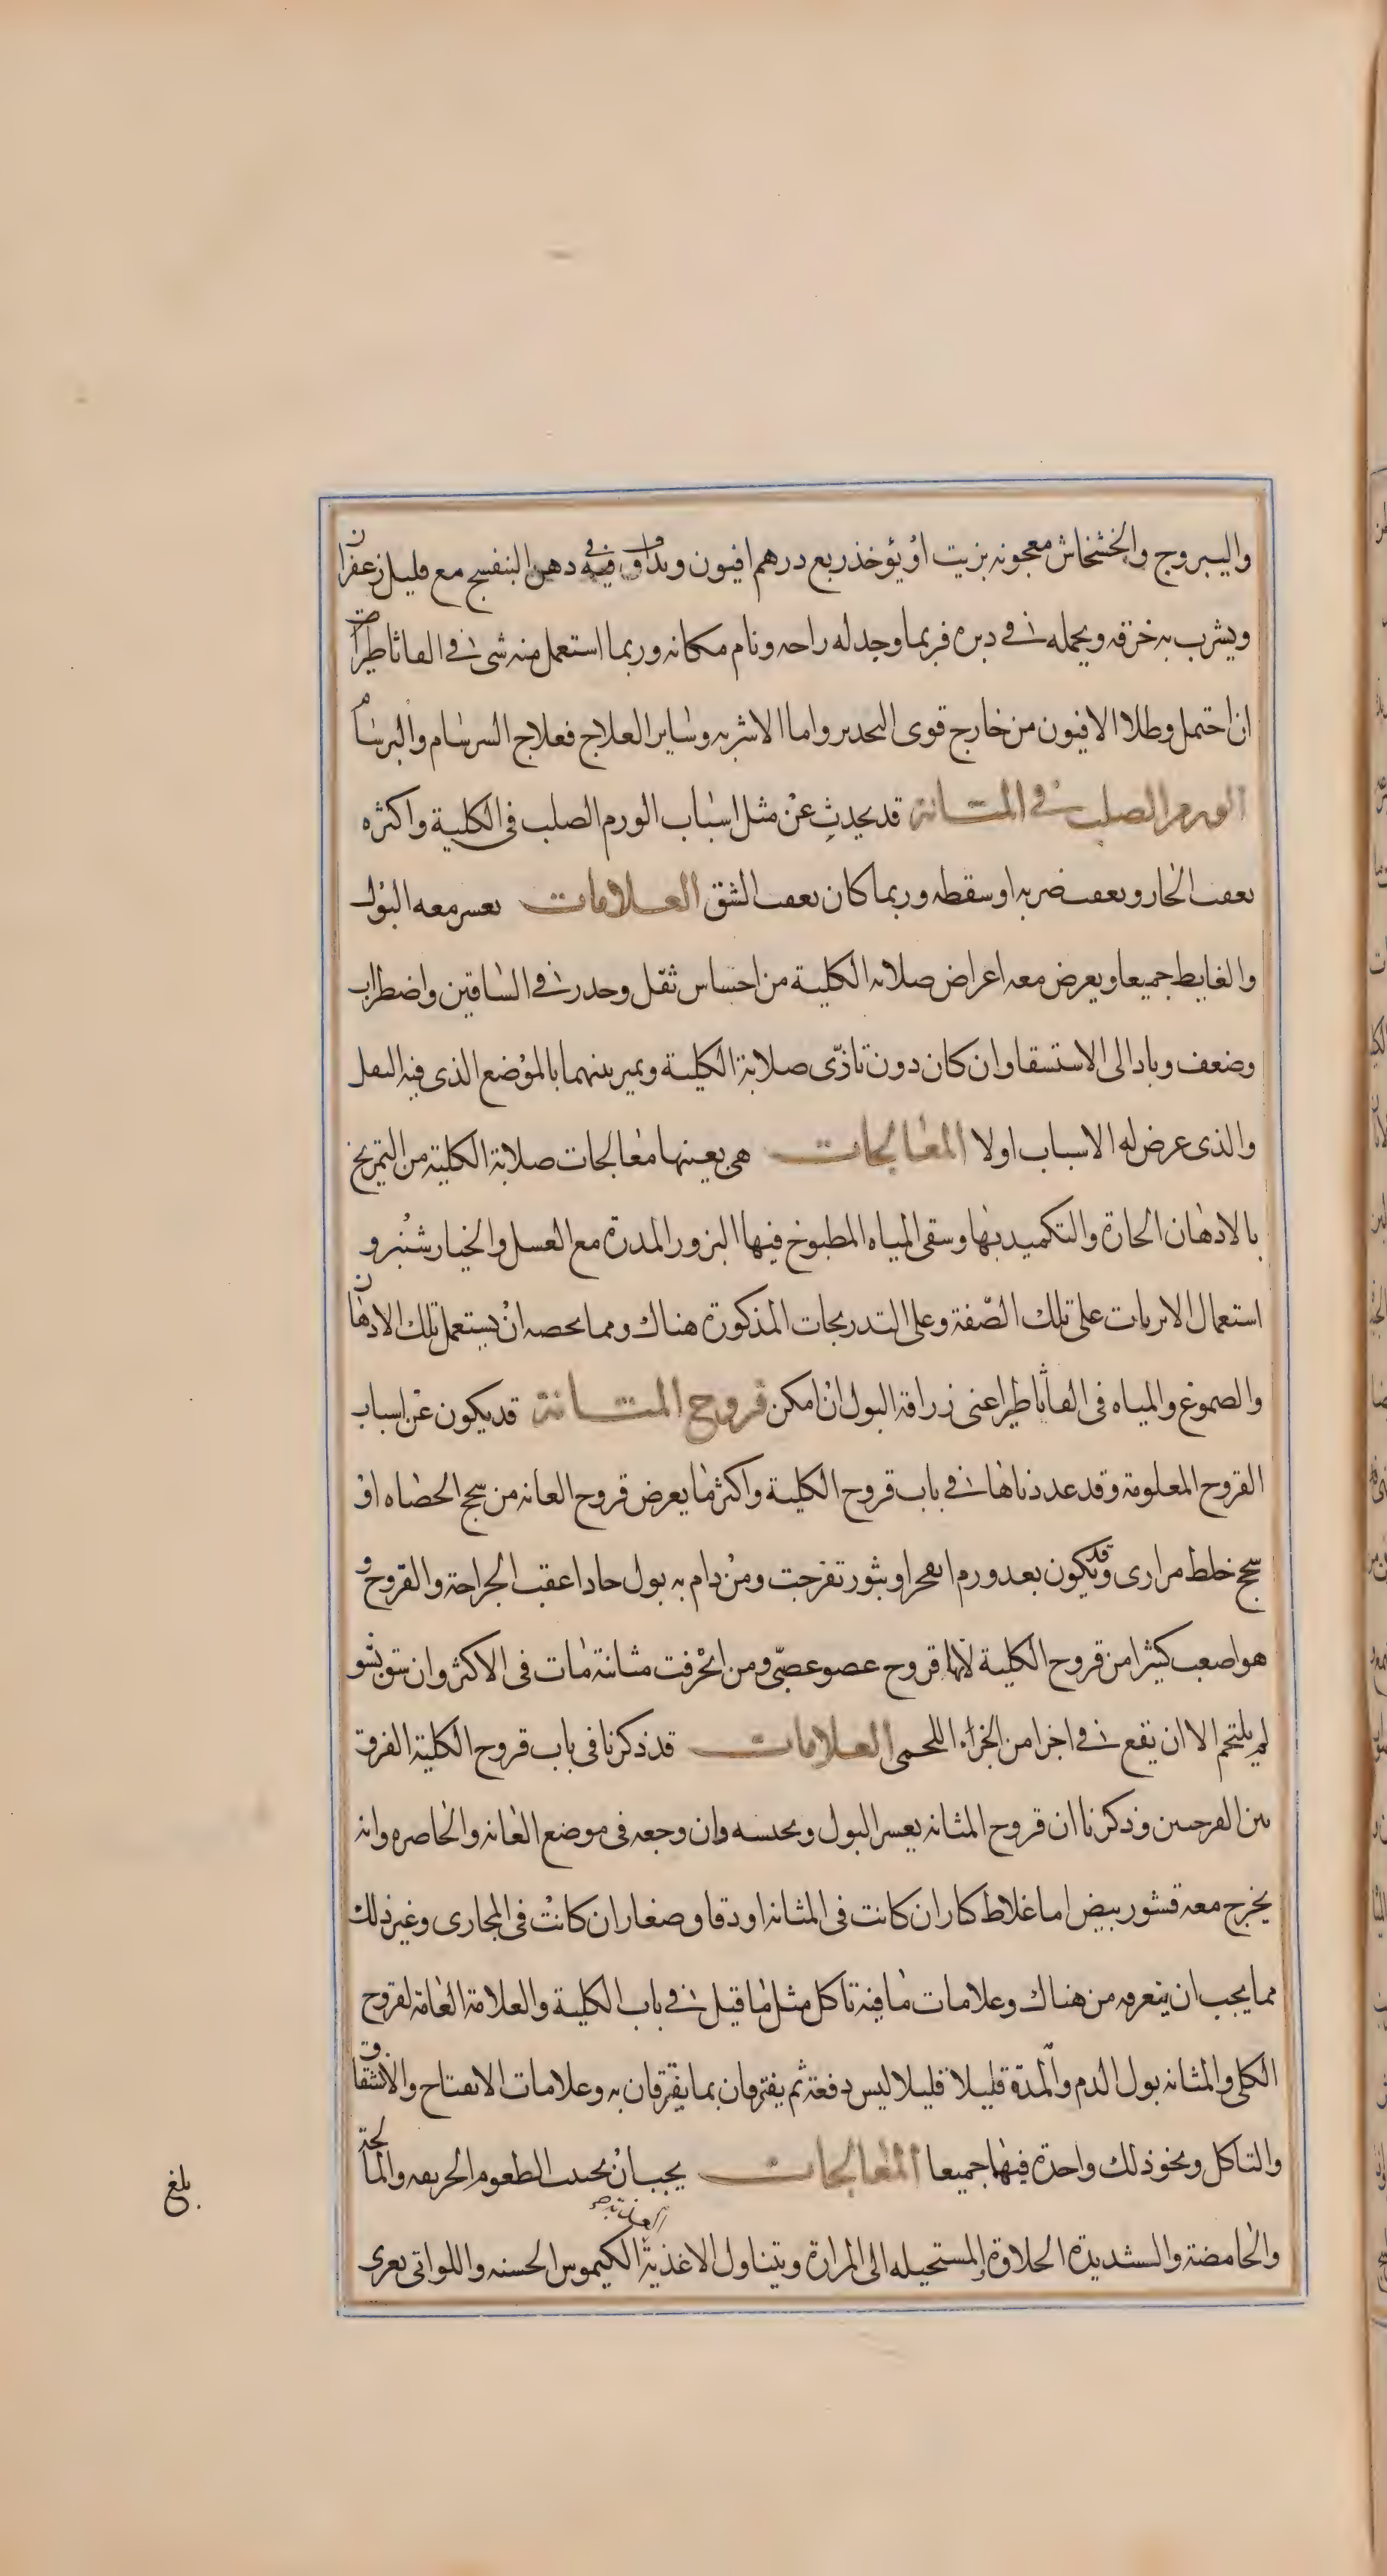 واليبروج والخشخاش معجونه بزيت او يؤخذ ربع درهم افيون ويداف في دهن البنفسج مع قليل زعفران
ويشرب به خرقه ويحمله في دبره فربما وجد له راحه ونام مكانه وربما استعمل منه شى في القاثاطير
ان احتمل وطلا الافيون من خارج قوى التحدير واما الاشربه وساير العلاج فعلاج السرسام والبرسام
الورم الصلب في المثانة قد يحدث عن مثل اسباب الورم الصلب فى الكلية واكثره
يعقب الحار ويعقب ضربه او سقطه وربما كان يعقب الشق العلامات يعسر معه البول
والغايط جميعا ويعرض معه اعراض صلابه الكلية من احساس ثقل وخدر في الساقين واضطراب
وضعف وباد الى الاستسقا وان كان دون تاذّى صلابة الكلية ويميز بينهما بالموضع الذى فيه الثقل
والذى عرض له الاسباب اولا المعالجات هى بعينها معالجات صلابة الكلية من التمريخ
بالادهان الحارة والتكميد بها وسقى المياه المطبوخ فيها البزور المدرة مع العسل والخيارشنبر و
استعمال الابزيات على تلك الصّفة وعلى التدريجات المذكورة هناك ومما يخصه ان يستعمل تلك الادهان
والصموغ والمياه فى القاثاطير اعنى زراقة البول ان امكن قروح المثانة قد يكون عن اسباب
القروح المعلومة وقد عددناها في باب قروح الكلية واكثر ما يعرض قروح العانه من سحج الحصاه او
سحج خلط مرارى وقد يكون بعد ورم انفجر او بثور تفرجت ومن دام به بول حاد اعقب الجراحة والقروح و
هو اصعب كثيرا من قروح الكلية لانها قروح عضو عصبّى ومن انخرقت مثانته مات فى الاكثر وان
لم يلتحم الا ان يقع في اجزا من الجزاء اللحمى العلامات قد ذكرنا فى باب قروح الكلية الفرق
بين القرحتين وذكرنا ان قروح المثانه يعسر البول ويحبسه وان وجعه فى موضع العانه والخاصره وانه
يخرج معه قشور بيض اما غلاظ كبار ان كانت فى المثانه او دقاق صغار ان كانت فى المجارى وغير ذلك
مما يجب ان يتعرفه من هناك وعلامات ما فيه تاكل مثل ما قيل في باب الكلية والعلامة العامة لقروح
الكلى والمثانه بول الدم والمدّة قليلا قليلا ليس دفعة ثم يفترقان بما يفترقان به وعلامات الانفتاح والانشقاق
والتاكل ونحو ذلك واحدة فيهما جميعا المعالجات يجب ان يجتنب الطعوم الحريفه والمالحة
والحامضة والشديدة الحلاوة والمستحيله الى المرارة ويتناول الاغذية الكيموس الحسنه واللواتى يغرى
بلغ